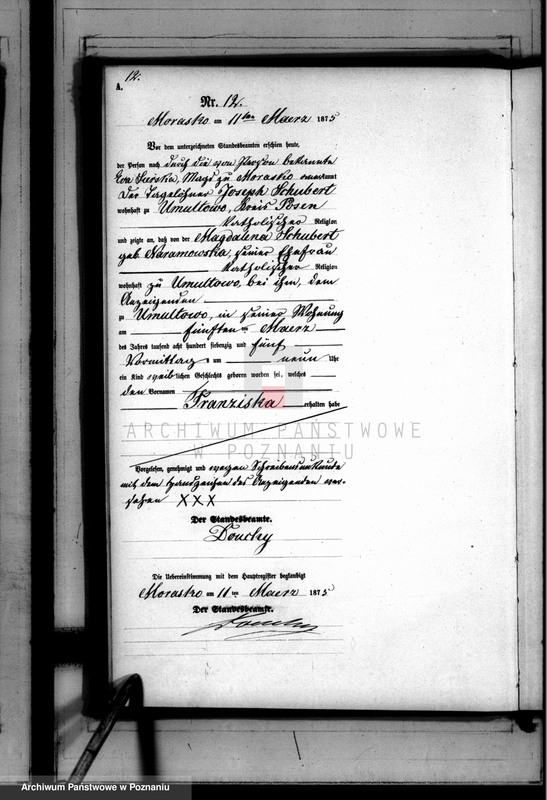 12.
A.
Nr. 12.
Morasko am 11ten Maerz 1875
Vor dem unterzeichneten Standesbeamten erschien heute,
der Person nach durch die von Person bekannte
Magd zu Morasko anerkannt
Der Tagelöhner Joseph Schubert
wohnhaft zu Umultowo, Kreis Posen
katholischer Religion
und zeigte an, daß von der Magdalena Schubert
geb. Naramowska, seiner Ehefrau
katholischer Religion
wohnhaft zu Umultowo, bei ihm, dem
Anzeigenden
zu Umultowo, in seiner Wohnung
am fünften Maerz
des Jahres tausend acht hundert siebenzig und fünf
Vormittag s um neun Uhr
ein Kind weiblichen Geschlechts geboren worden sei, welches
den Vornamen
Franziska erhalten habe
ARCHIWUM PAŃSTWOWE
W POZNANIU
Vorgelesen, genehmigt und wegen Schreibensunkunde
mit dem Handzeichen des Anzeigenden ver-
sehen XXX
Der Standesbeamte.
Douchy
Die Uebereinstimmung mit dem Hauptregister beglaubigt
Morasko am 11ten Maerz 1875
Der Standesbeamte.
Douchy
Archiwum Państwowe w Poznaniu